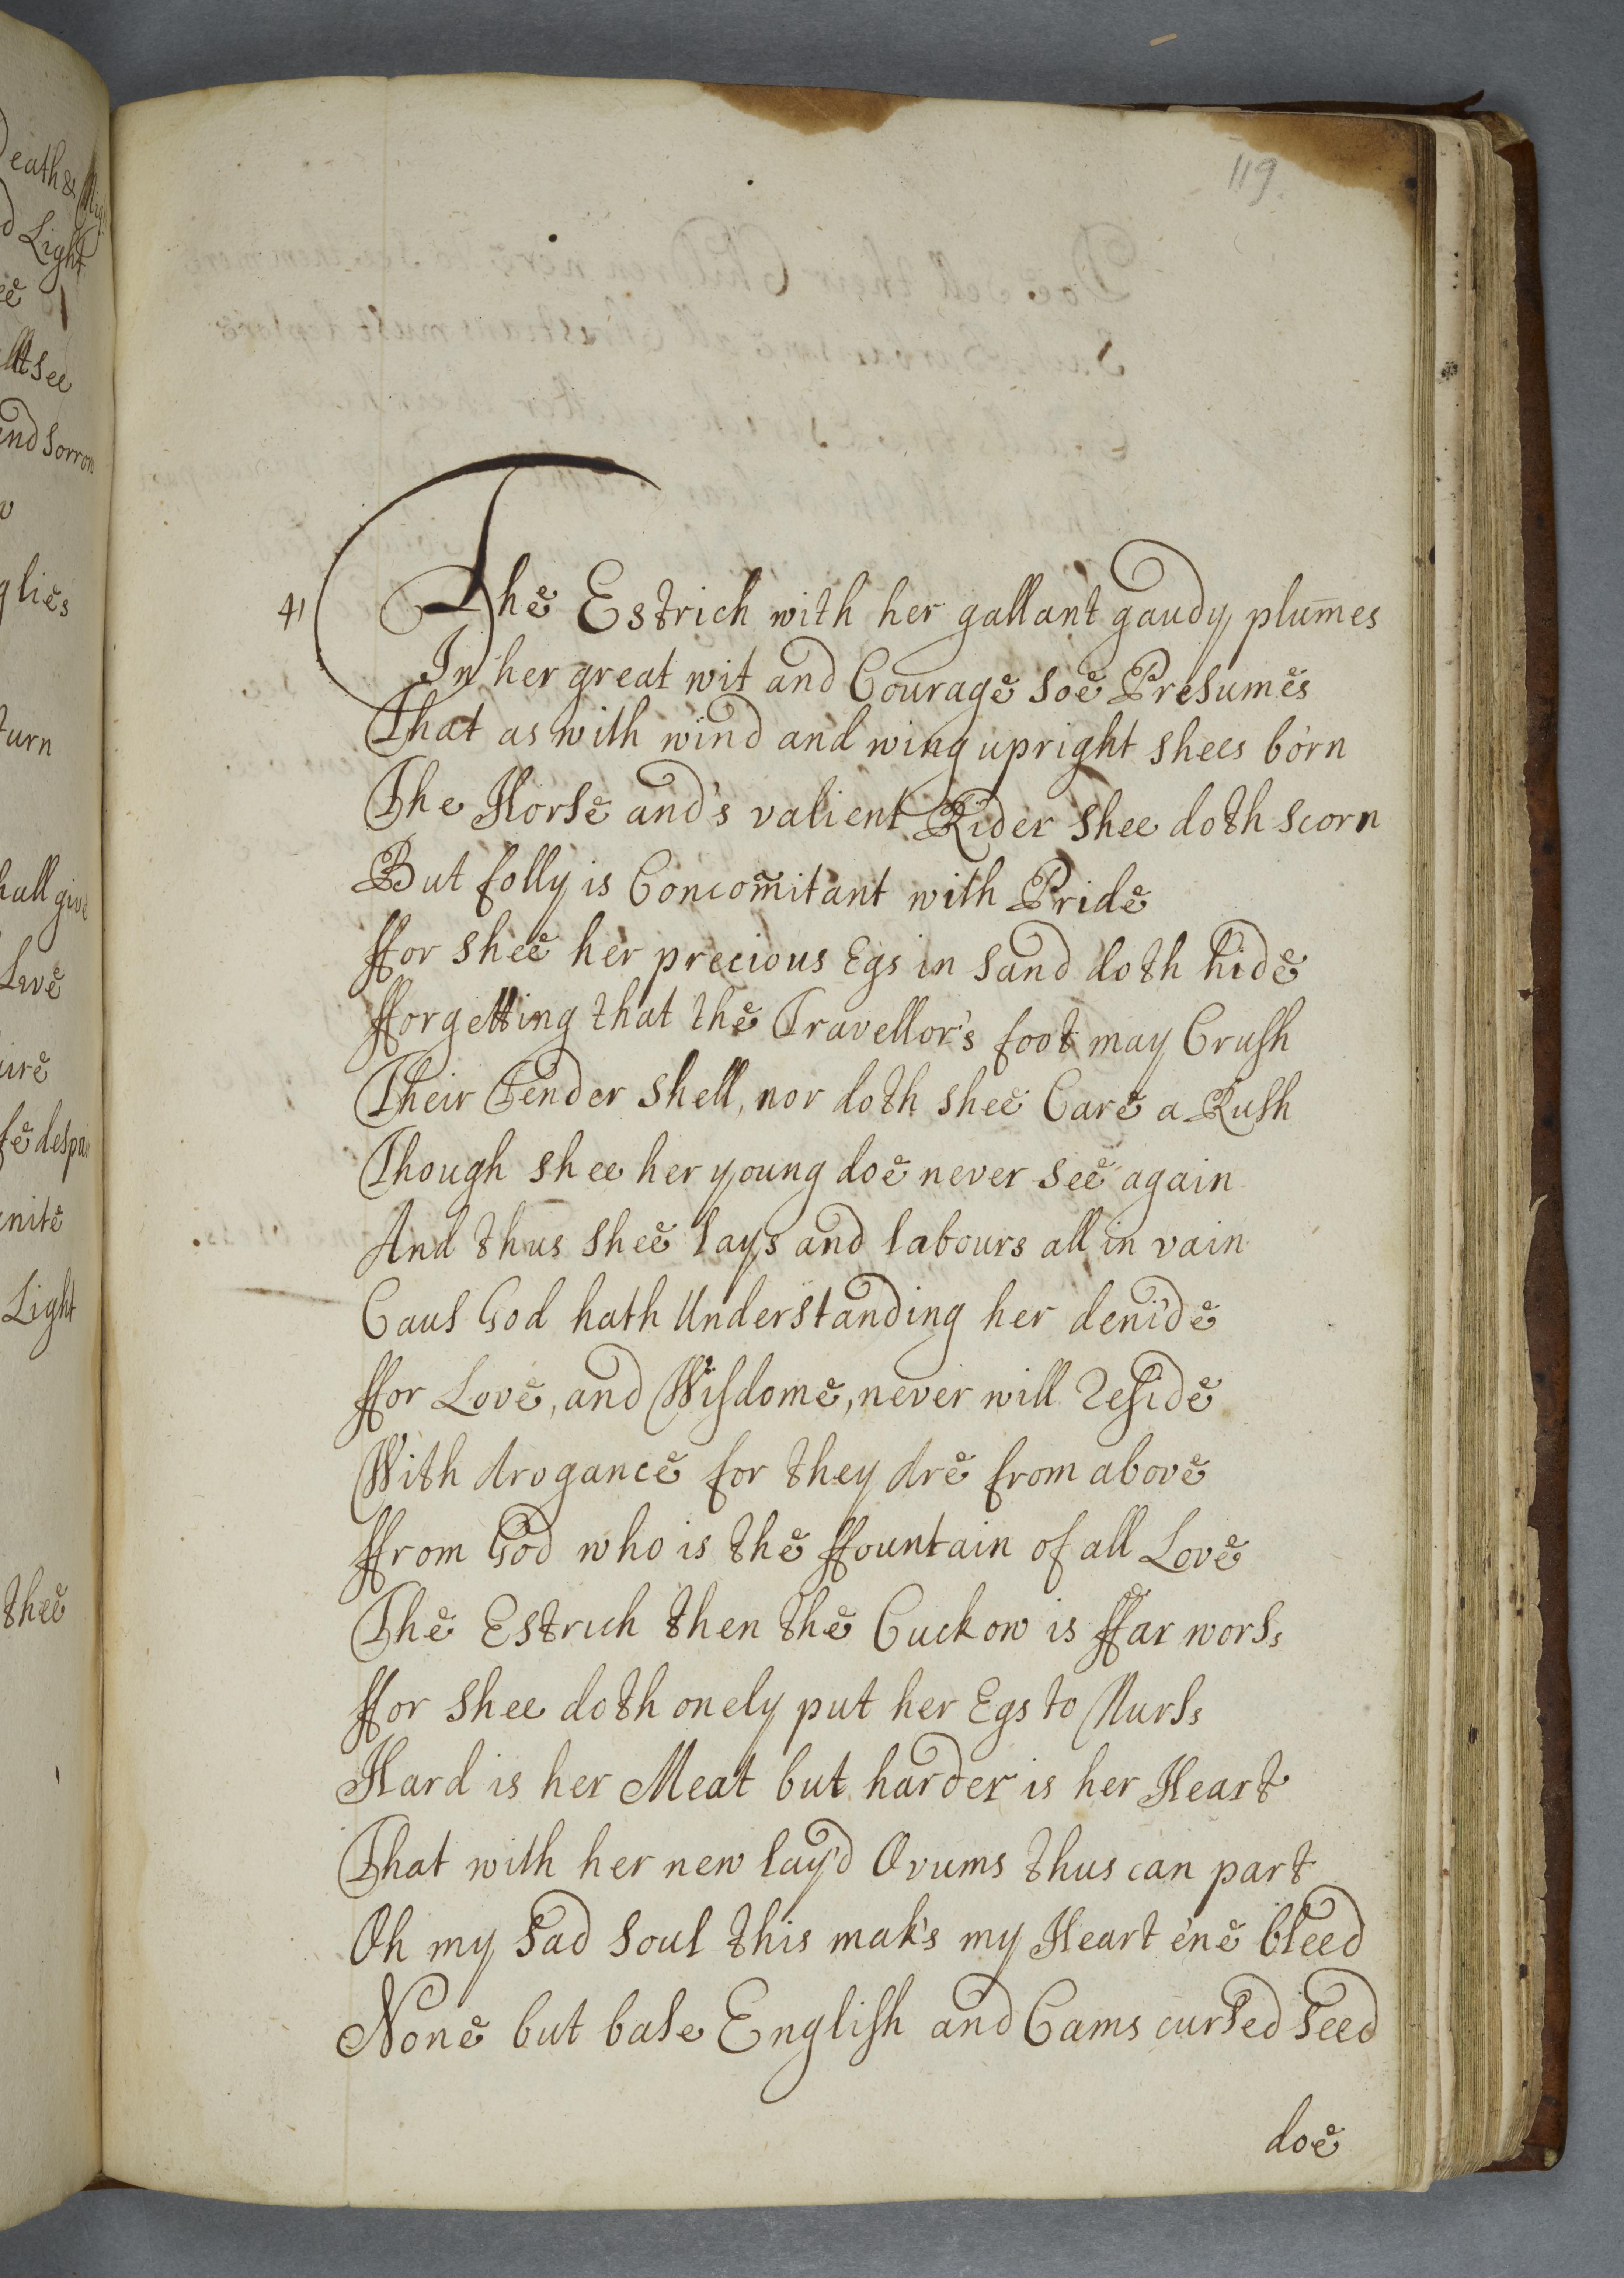 119
41 The Estrich with her gallant gaudy plum̄es
In her great wit and Courage soe Presumes
That as with wind and wing upright shees born
The Horse and's valient Rider shee doth scorn
But folly is Concom̄itant with Pride
ffor shee her precious Egs in sand doth hide
fforgetting that the Travellor's foot may Crush
Their Tender shell, nor doth shee Care a Rush
Though shee her young doe never see again
And thus shee lays and labours all in vain
Caus God hath Understanding her deni'de
ffor Love, and Wisdome, never will Reside
With Arogance for they Are from above
ffrom God who is the ffountain of all Love
The Estrich then the Cuckow is ffar wors,
ffor shee doth onely put her Egs to Nurs,
Hard is her Meat but harder is her Heart
That with her new lay'd Ovums thus can part
Oh my sad soul this mak's my Heart e'ne bleed
None but base English and Cams cursed seed
doe
eath &
Light
see
and sorrow
glies
turn
hall give
Live
despair
Light
thee